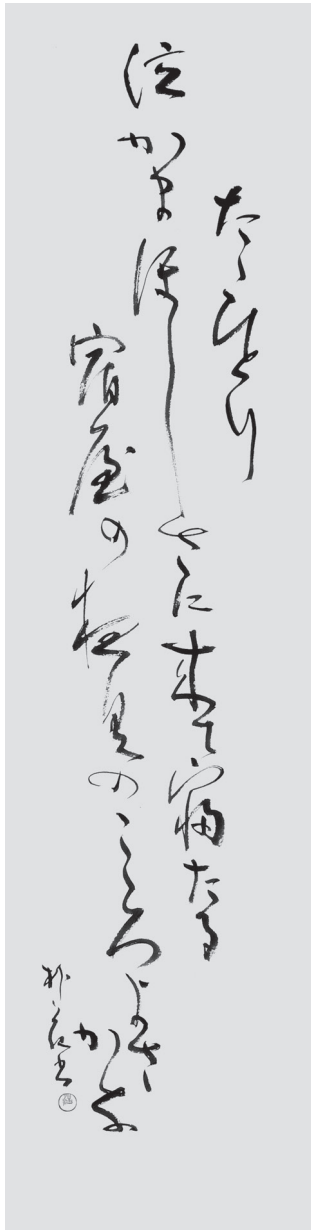 たゝひとり
泣かまほしさに来て寝たる
宿屋の夜具のこゝろよさかな